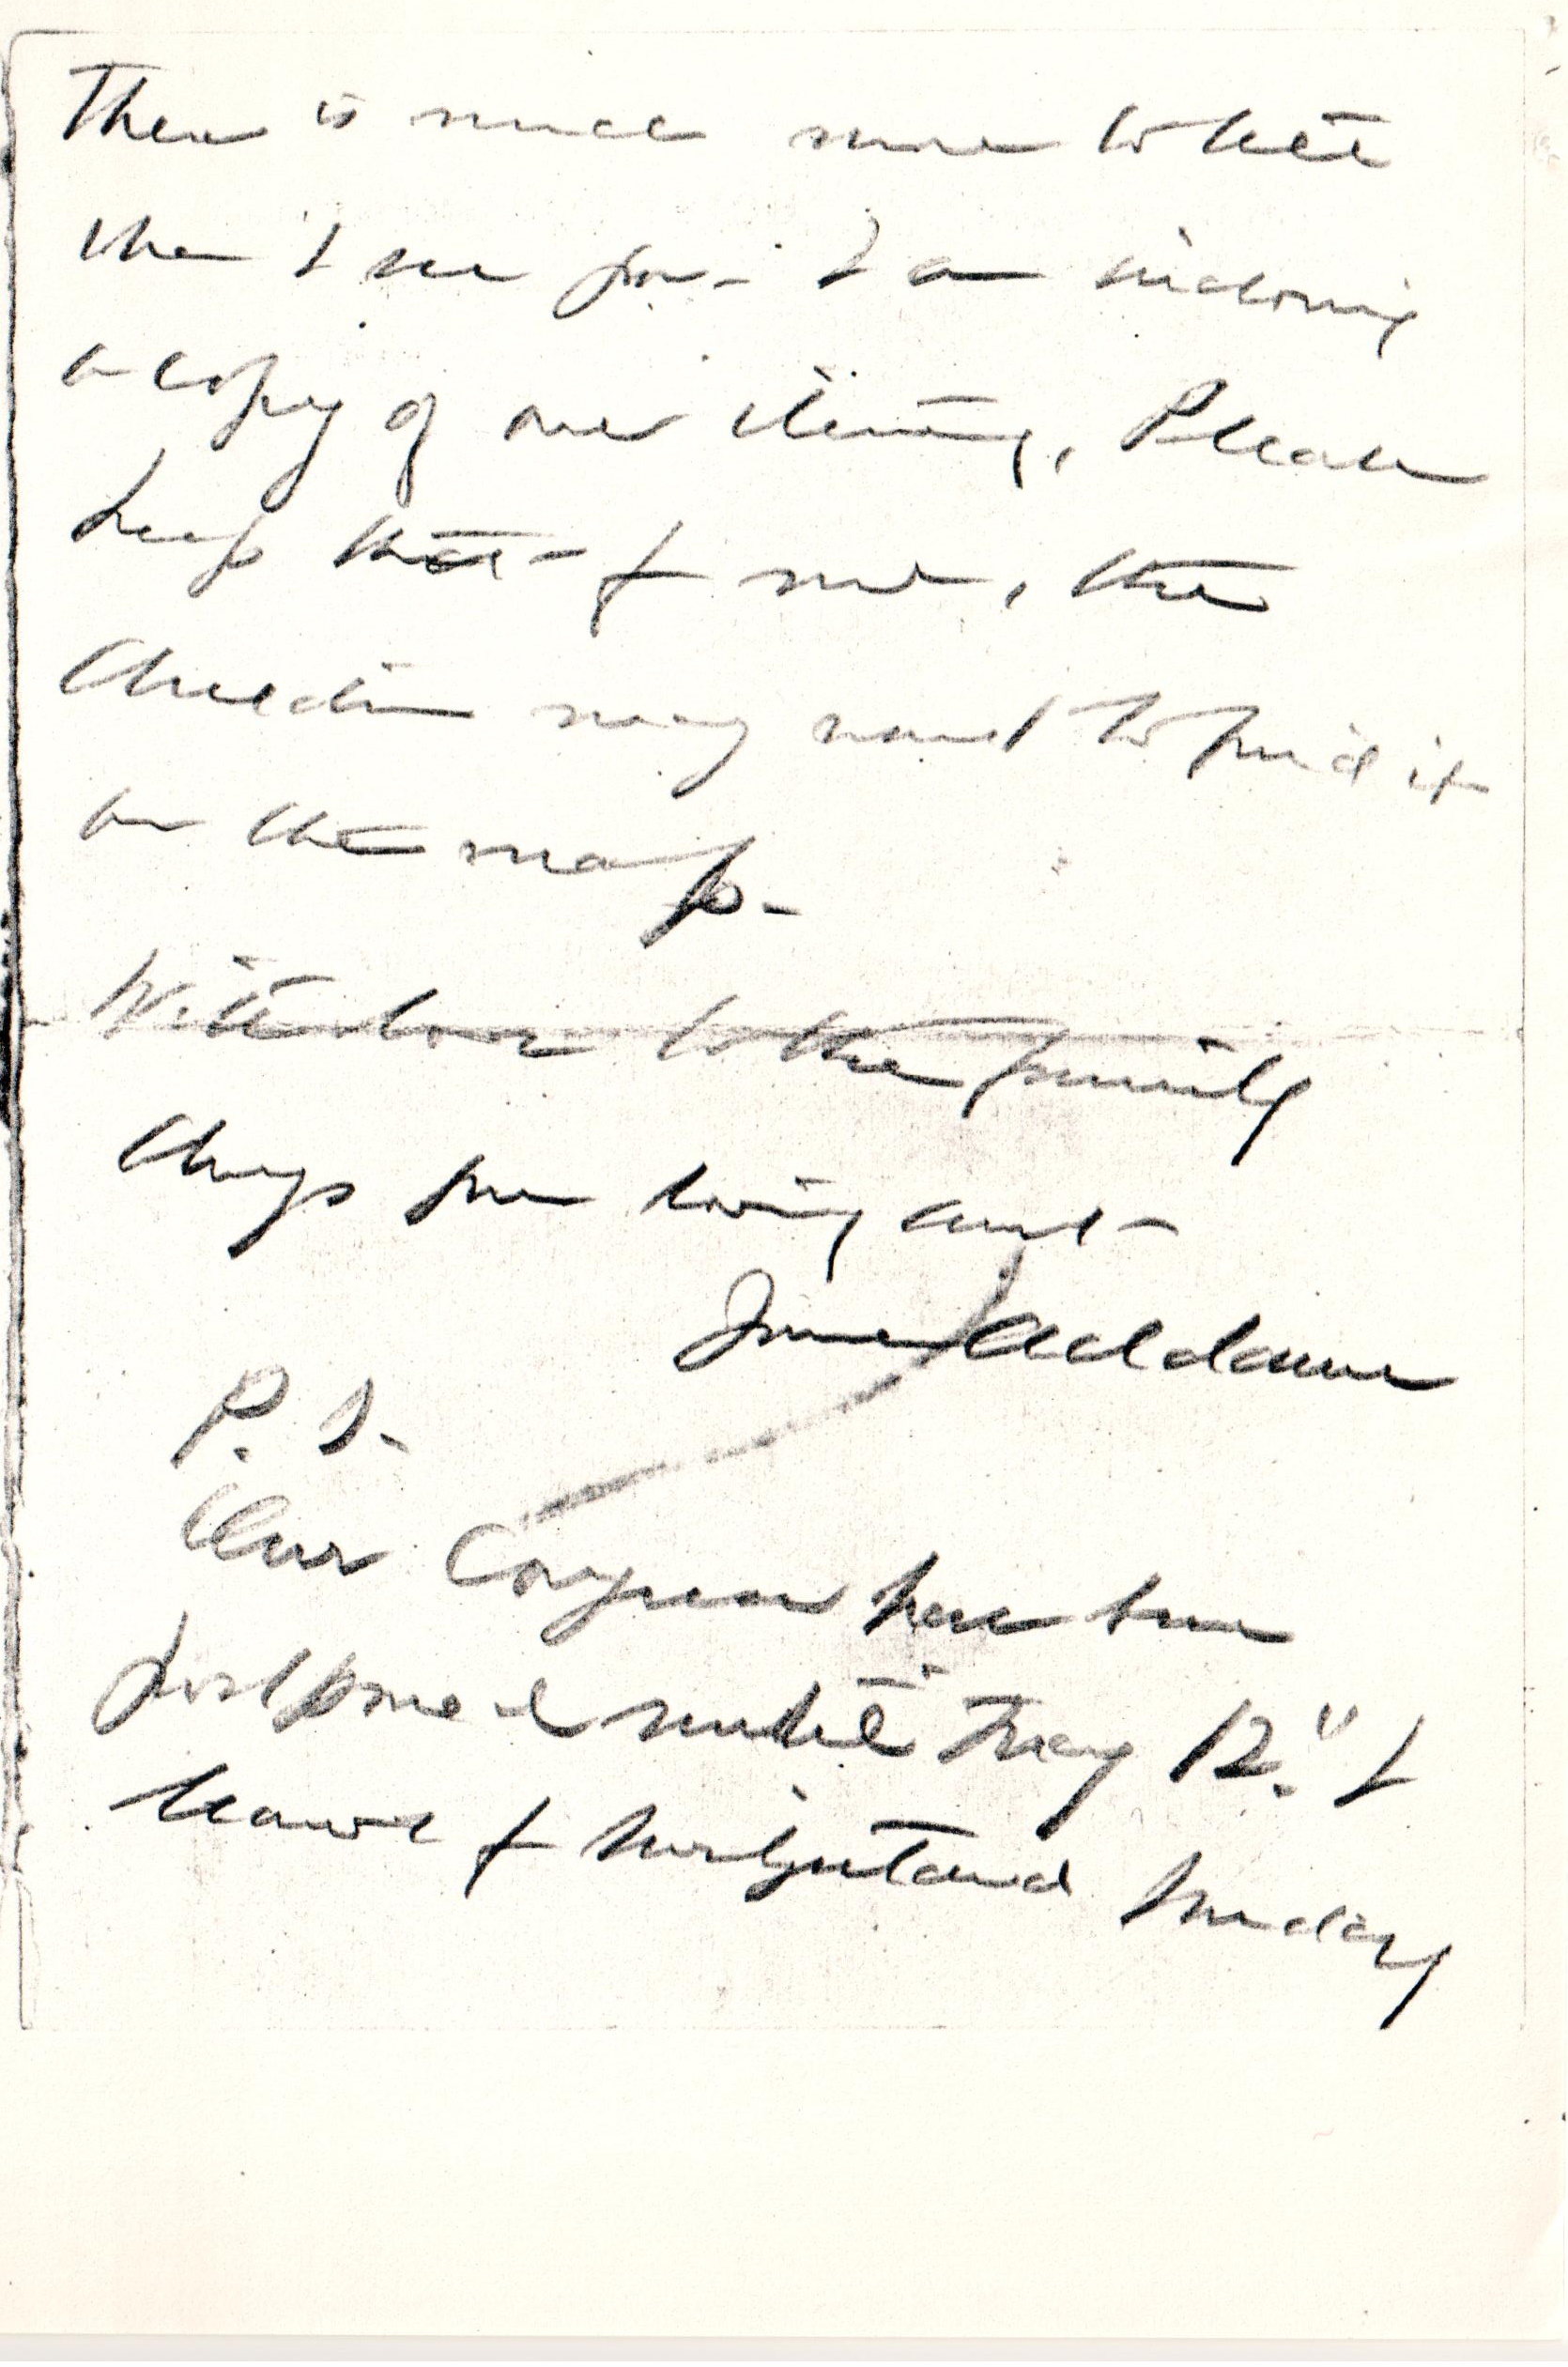 There is much more to tell
when I see you - I am inclosing
a copy of our itinerary, Please
keep that for me, the
Children may want to find it
on the map -
With love to the family
Always your loving aunt -
Jane Addams
P. S.
Our Congress has been
postponed until May 12." I
leave for Switzerland Sunday